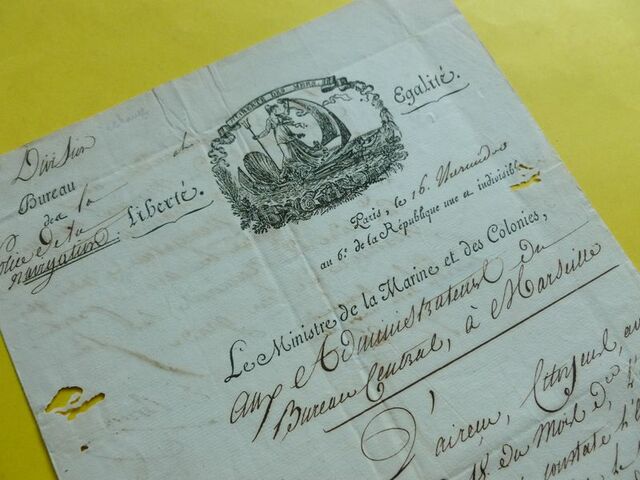 LIBERTÉ DES MERS
Egalité.
Division
Bureau
de la
Police de la
navigation.
Liberté.
Paris, le 16
au 6.e de la République une & indivisible.
Le Ministre de la Marine et des Colonies,
aux Administrateurs du
Bureau Central, à Marseille
Citoyens,
18 du Mois d
constate